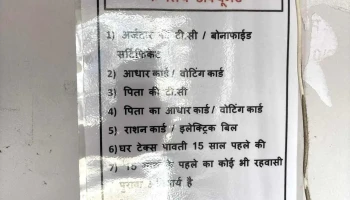 1) अर्जदार की टी.सी / बोनाफाईड
सर्टिफिकेट
2) आधार कार्ड / वोटिंग कार्ड
3) पिता की टी.सी
4) पिता का आधार कार्ड / वोटिंग कार्ड
5) राशन कार्ड / इलेक्ट्रिक बिल
6) घर टेक्स पावती 15 साल पहले की
7) 15 के पहले का कोई भी रहवासी
है